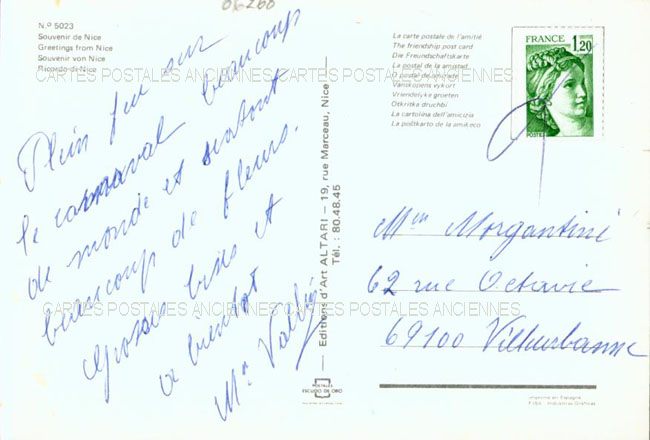 06260
N.º 5023
Souvenir de Nice
Greetings from Nice
Souvenir von Nice
Ricordo di Nice
La carte postale de l'amitié
The friendship post card
Die Freundschaftskarte
La postal de la amistad
O postal da amizade
Vanskapens vykort
Vriendelyke groeten
Otkritka druchbi
La cartolina dell'amicizia
La poŝtkarto de la amikeco
FRANCE
1,20
POSTES
CARTES POSTALES ANCIENNES CARTES POSTALES ANCIENNES
Plein feu sur
le carnaval beaucoup
de monde et surtout
beaucoup de fleurs.
Grosses bises et
a bientot
Editions d'Art ALTARI – 19, rue Marceau, Nice
Tél. : 80.48.45
Mme Morgantini
62 rue Octavie
69100 Villeurbanne
CARTES POSTALES ANCIENNES CARTES POSTALES ANCIENNES
POSTALES
ESCUDO DE ORO